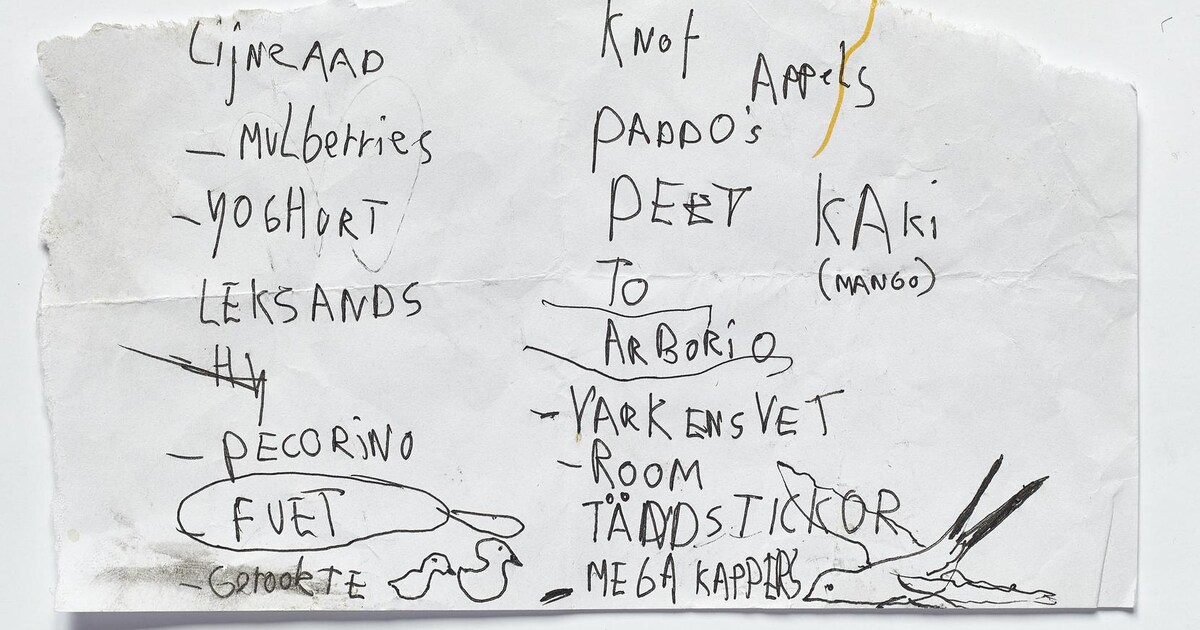 LijNZAAD
- MULberries
- YOGHURT
LEKSANDS
- Hy
- PECORiNO
FUET
- GerookTE
KNOf
APPeLS
PADDO's
PEET
KAKi
(MANGO)
TO
ARBORiO
- VARKENSVET
- ROOM
TÄNDSTICKOR
- MEGA KAPPERS